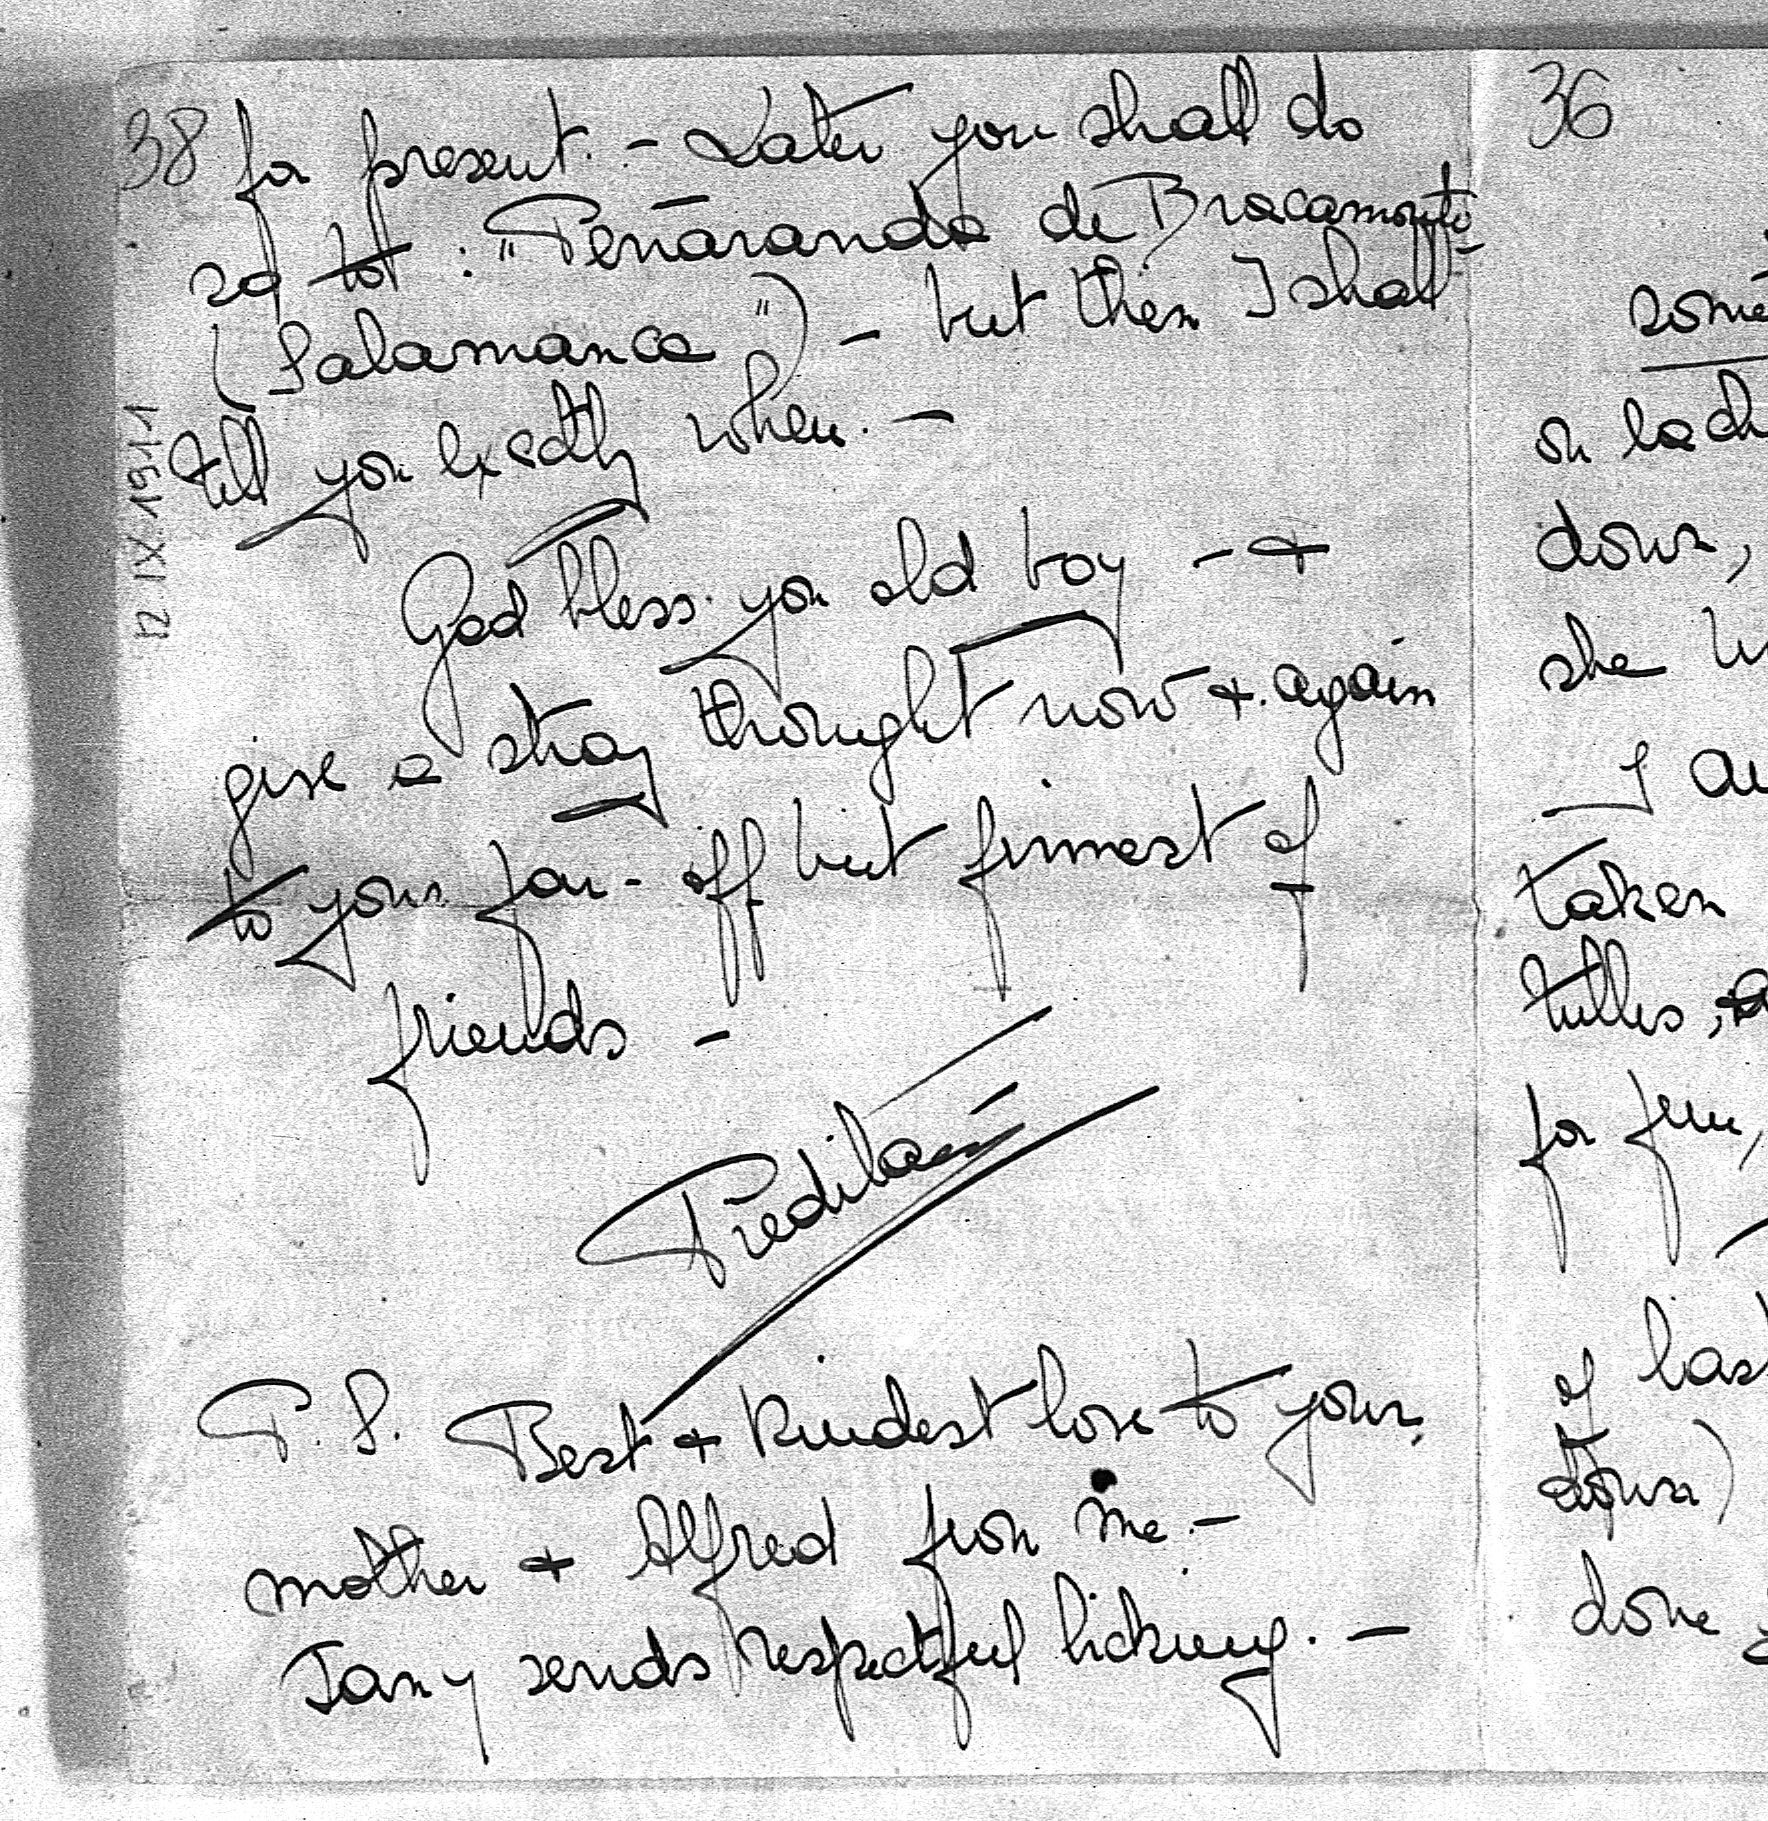 38
for present. - Later you shall do
so tot : "Peñaranda de Bracamonte
(Salamanca") - but then I shall
tell you exactly when. -
12 IX 1911
God bless you old boy - +
give a stray thought now + again
to your far-off but firmest of
friends -
P.S. Best + kindest love to your
mother + Alfred from me. -
Jany sends respectful licking. -
36
some
on
down,
she
I
taken
tulles,
for fun,
of last
down)
done